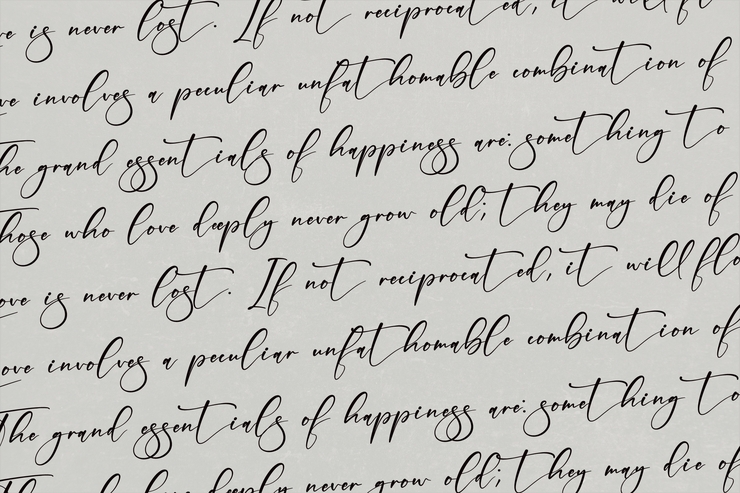 ve is never lost. If not reciprocated, it will fl
ve involves a peculiar unfathomable combination of
he grand essentials of happiness are: something to
hose who love deeply never grow old; they may die of
ove is never lost. If not reciprocated, it will flo
ove involves a peculiar unfathomable combination of
The grand essentials of happiness are: something to
deeply never grow old; they may die of